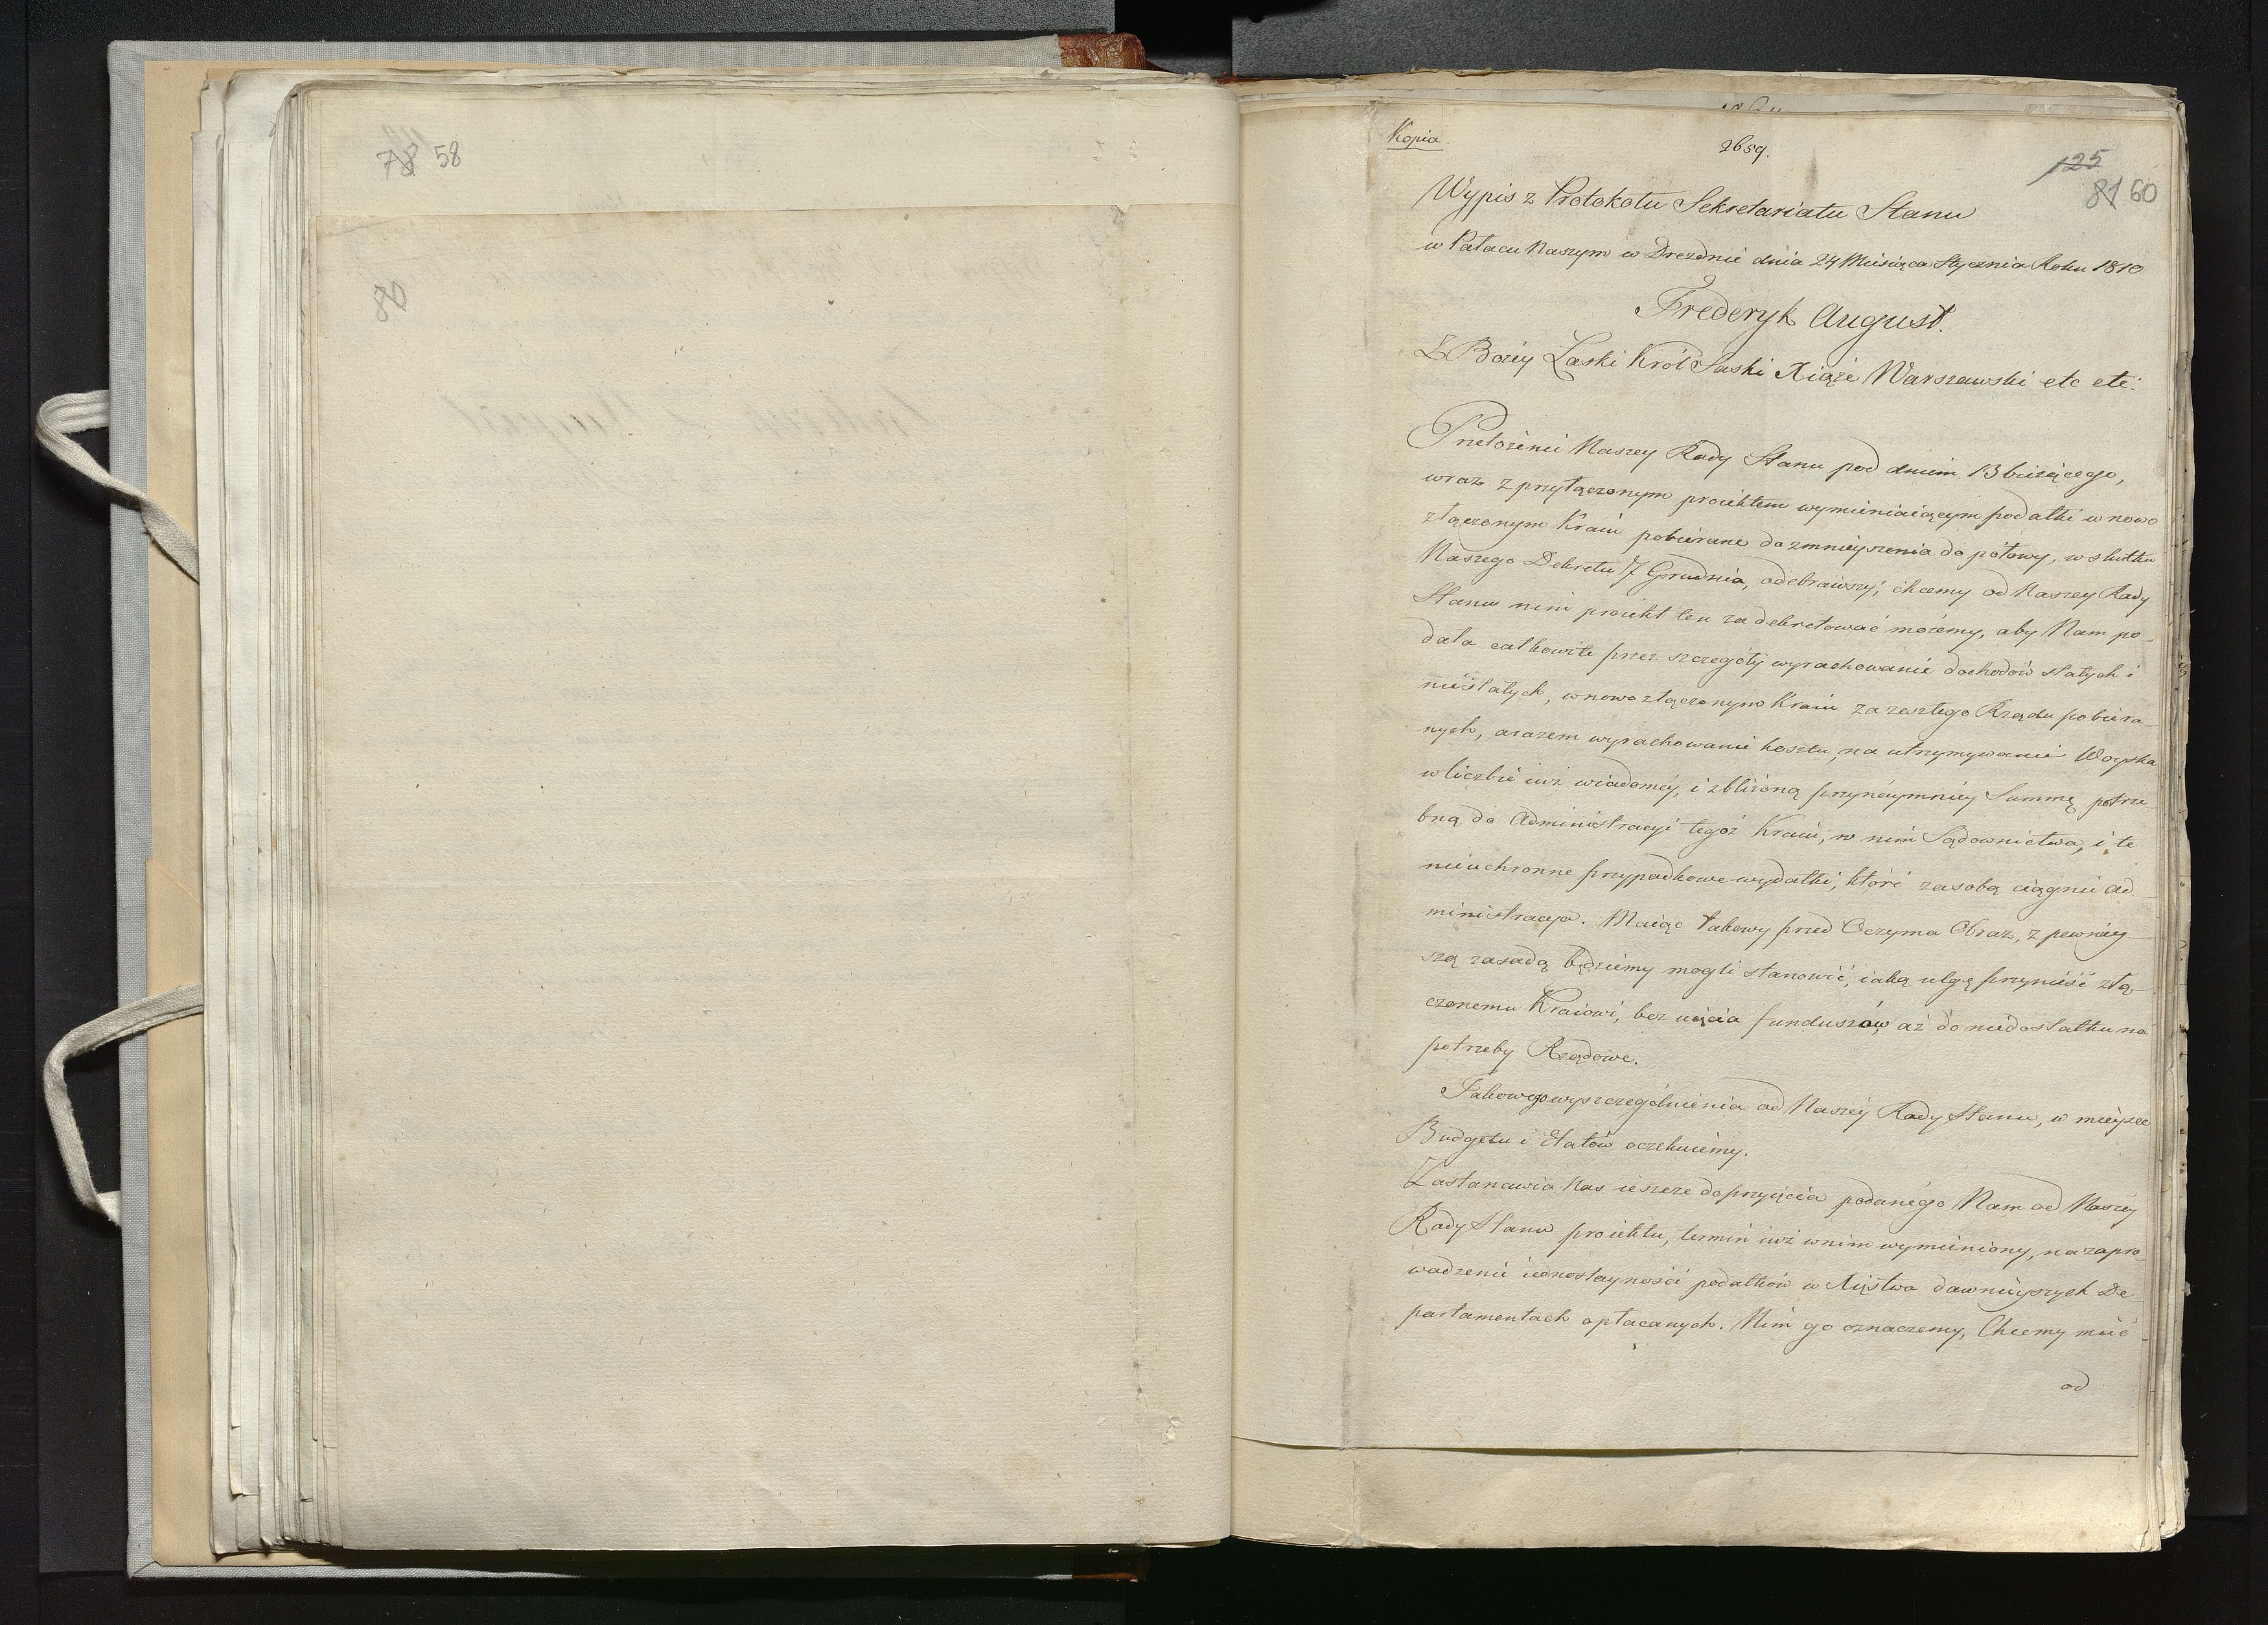 78 58
80
Kopia
2659.
125
81 60
Wypis z Protokołu Sekretariatu Stanu
w Pałacu Naszym w Dreznie dnia 24 Miesiąca Stycznia Roku 1810
Frederyk August.
Z Bożey Łaski Król Saski Xiąże Warszawski etc etc:
Przełożenie Naszey Rady Stanu pod dniem 13 bieżącego,
wraz z przyłączonym proiektem wymieniaiącym podatki w nowo
złączonym Kraiu pobierane do zmnieyszenia do połowy, w skutku
Naszego Dekretu 17 Grudnia, odebrawszy; chcemy od Naszey Rady
Stanu nim proiekt ten zadekretować możemy, aby Nam po-
dała całkowite przez szczegóły wyrachowanie dochodów stałych i
niestałych, w nowo złączonym Kraiu za zeszłego Rządu pobiera-
nych, a razem wyrachowanie kosztu, na utrzymywanie Woyska
w liczbie iuż wiadomey, i zbliżoną przynaymniey Summę potrze-
bną do Administracyi tegoż Kraiu, w nim Sądownictwa, i te
nieuchronne przypadkowe wydatki, które za sobą ciągnie ad
ministracya. Maiąc takowy przed Oczyma Obraz, z pewniey-
szą zasadą będziemy mogli stanowić, iaką ulgę przynieść złą-
czonemu Kraiowi, bez uięcia funduszów aż do niedostatku na
potrzeby Rządowe.
Takowego wyszczególnienia od Naszéy Rady Stanu, w mieysce
Budgetu i Etatów oczekuiemy.
Zastanawia Nas ieszcze do przyięcia podanégo Nam od Naszey
Rady Stanu proiektu, termin iuż w nim wymieniony, na zapro-
wadzenie iednostayności podatków w Xięstwa dawnieyszych De-
partamentach opłacanych. Nim go oznaczemy, Chcemy mieć
od